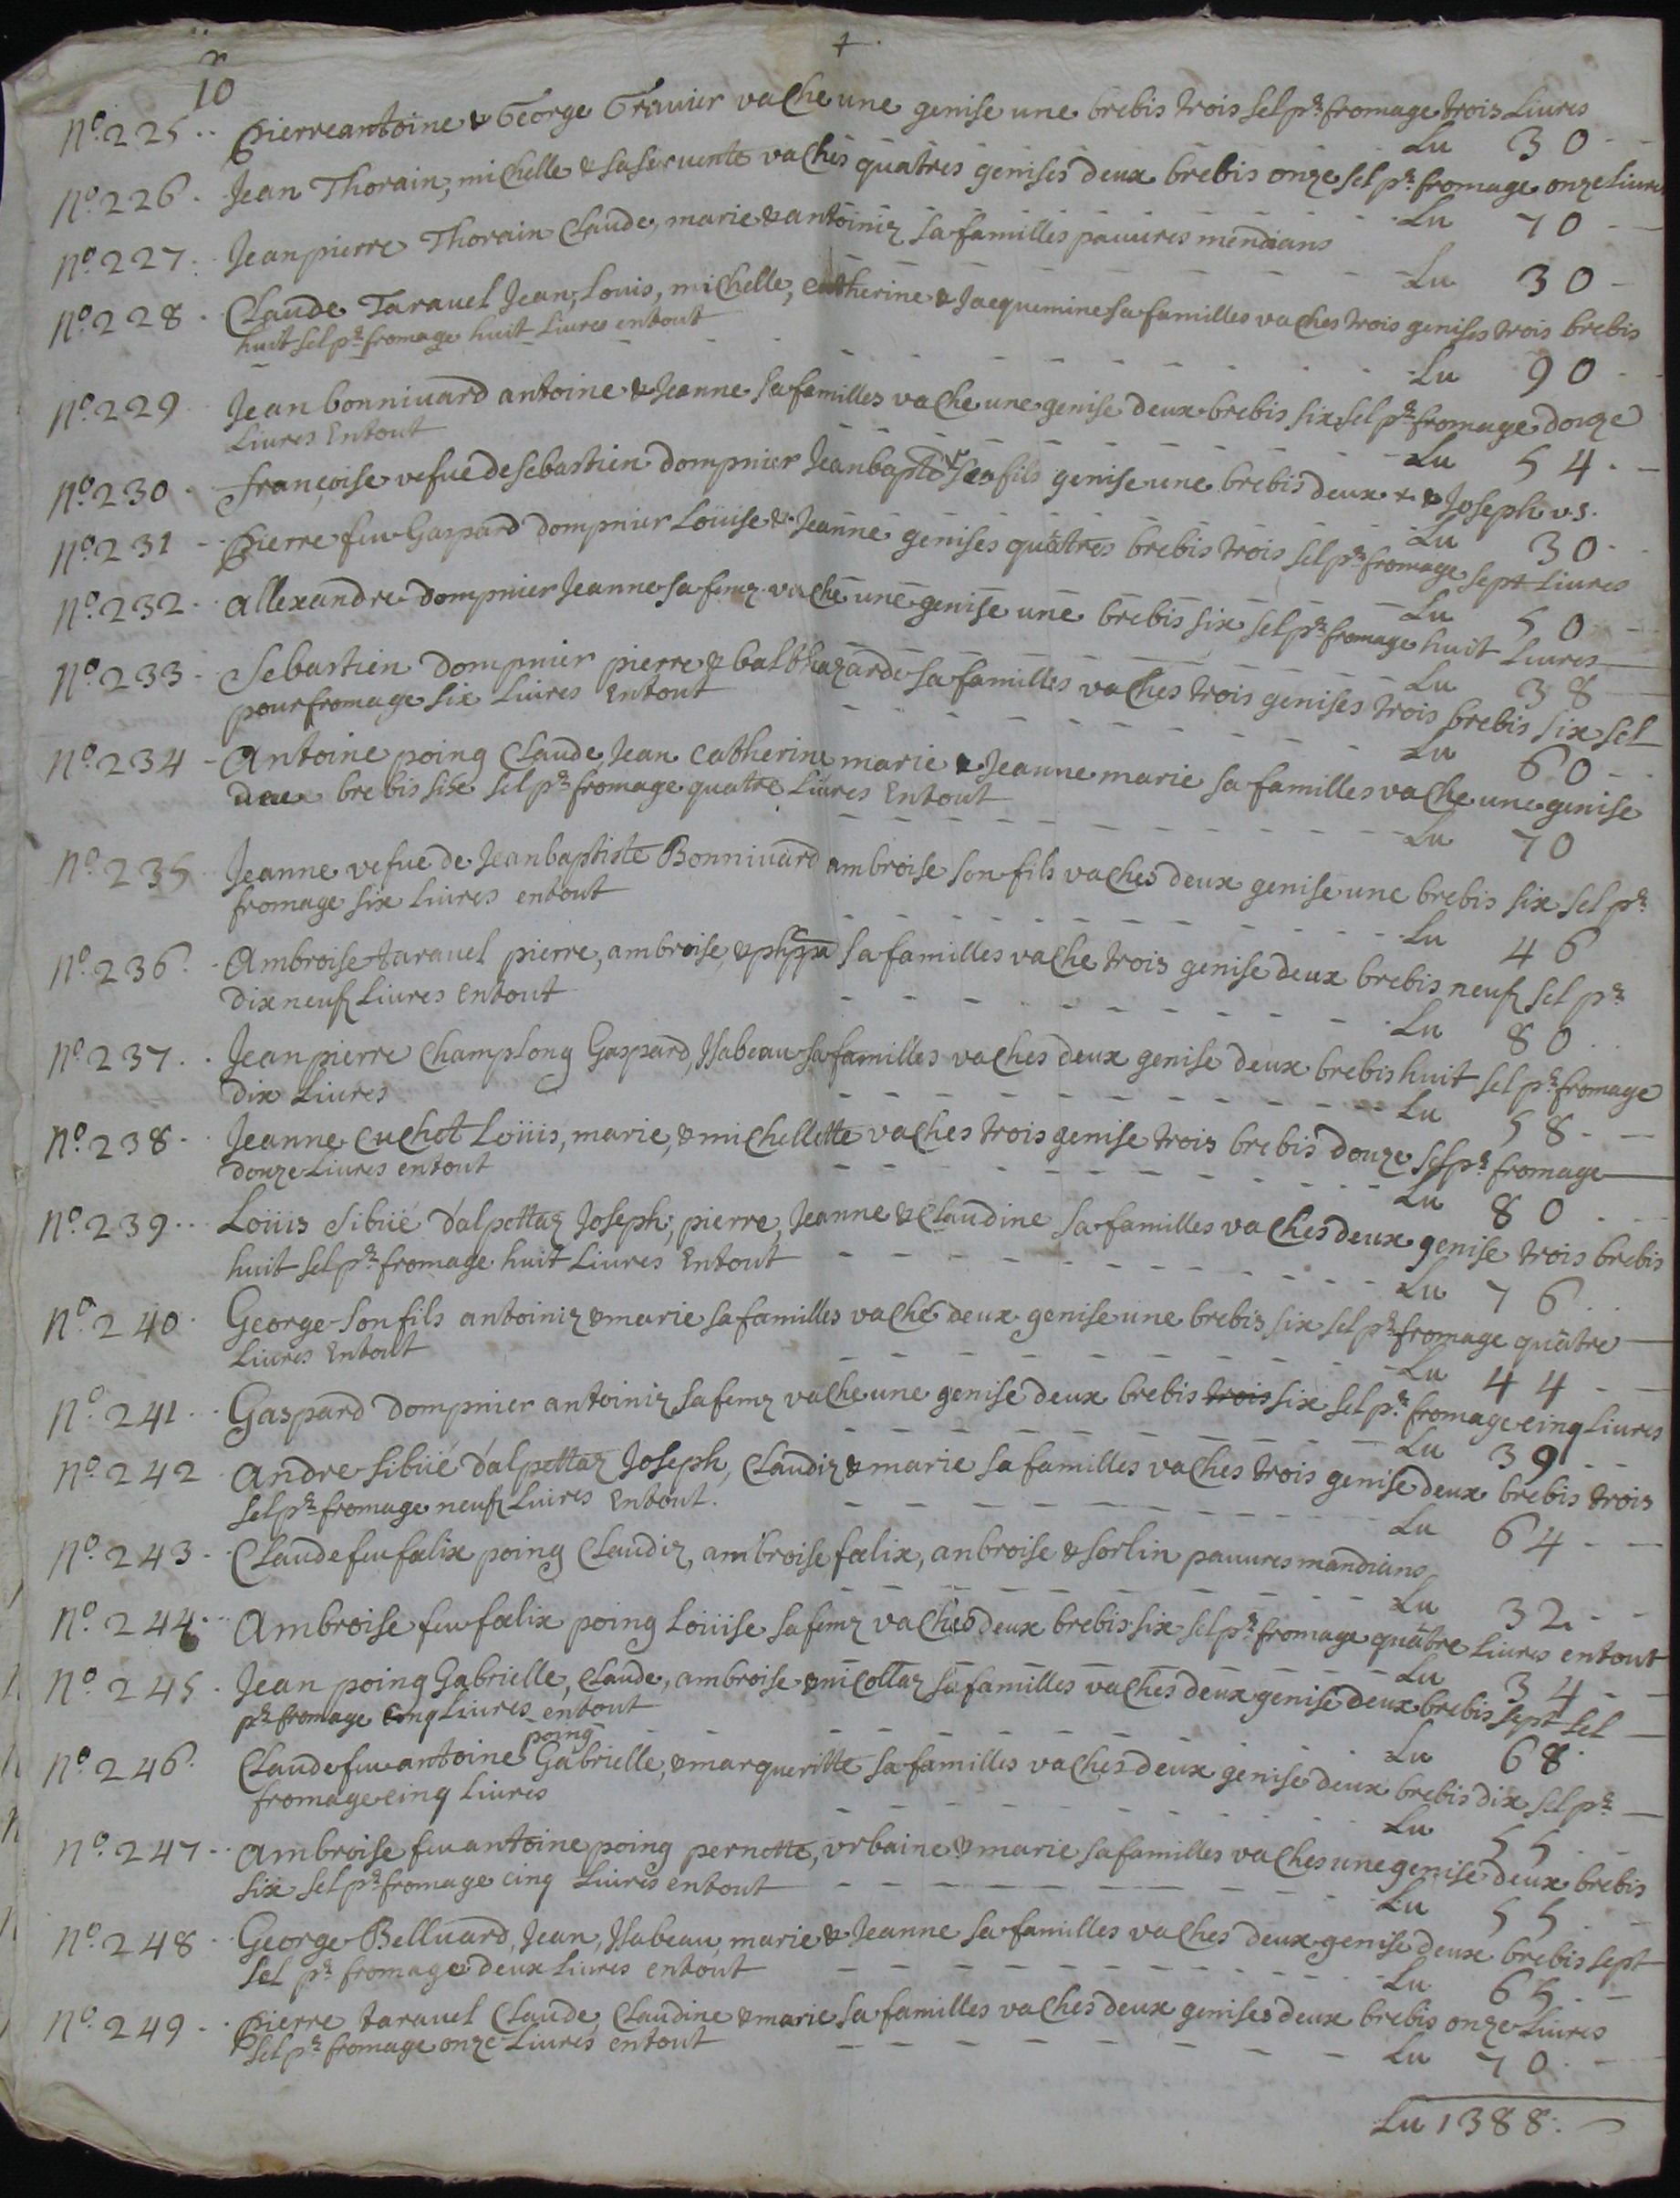 10
No. 225 .. Pierre antoine & George Grauier vache une genise une brebis trois sel pr. fromage trois Liures
Lu 30
No. 226 . Jean Thorain, michelle & sa seruente vaches quatres genises deux brebis onze sel pr. fromage onze Liures
Lu 70
No. 227 . Jean pierre Thorain Claude, marie & antoiniz sa familles pauures mendians
Lu 30
No. 228 . Claude Tarauel Jean, Louis, michelle, catherine & Jacquemine sa familles vaches trois genises trois brebis
huit sel pr. fromage huit Liures entout
Lu 90
No. 229 Jean bonniuard antoine & Jeanne sa familles vache une genise deux brebis six sel pr. fromage douze
Liures Entout
Lu 54
No. 230 . françoise vefue de sebastien dompnier Jean bapte son fils genise une brebis deux + & Joseph v.s.
Lu 30
No. 231 - Pierre feu Gaspard dompnier Loüise & Jeanne genises quatres brebis trois sel pr. fromage sept Liures
Lu 50
No. 232 . allexandre dompnier Jeanne sa femz vache une genise une brebis six sel pr. fromage huit Liures
Lu 38
No. 233 - Sebastien dompnier pierre & balthazarde sa familles vaches trois genises trois brebis six sel
pour fromage six Liures Entout
Lu 60
No. 234 - Antoine poing Claude Jean catherine marie & Jeanne marie sa familles vache une genise
une brebis six sel pr. fromage quatre Liures Entout
Lu 70
No. 235 Jeanne vefue de Jean baptiste Bonniuard ambroise son fils vaches deux genise une brebis six sel pr.
fromage six Liures entout
Lu 46
No. 236 . Ambroise tarauel pierre, ambroise, & phppa sa familles vache trois genise deux brebis neufz sel pr.
dix neufz Liures entout
Lu 80
No. 237 . . Jean pierre Champlong Gaspard, Isabeau sa familles vaches deux genise deux brebis huit sel pr. fromage
dix Liures
Lu 58
No. 238 . Jeanne Cuchet Loüis, marie, & michellette vaches trois genise trois brebis douze sel pr. fromage
douze Liures entout
Lu 80
No. 239 .. Loüis Sibüé d'alpettaz Joseph, pierre, Jeanne & Claudine sa familles vaches deux genise trois brebis
huit sel pr. fromage huit Liures Entout
Lu 76
No. 240 . George son fils antoiniz & marie sa familles vache deux genise une brebis six sel pr. fromage quatre
Liures Entout
Lu 44
No. 241 .. Gaspard dompnier antoiniz sa femz vache une genise deux brebis trois six sel pr. fromage cinq Liures
Lu 39
No. 242 Andre sibüé d'alpettaz Joseph, Claudiz & marie sa familles vaches trois genise deux brebis trois
sel pr. fromage neufz Liures Entout.
Lu 64
No. 243 - Claude feu fœlix poing Claudiz, ambroise fœlix, anbroise & sorlin pauures mandians
Lu 32
No. 244 .. Ambroise feu fœlix poing Loüise sa femz vaches deux brebis six sel pr. fromage quatre Liures entout
Lu 34
No. 245 . Jean poing Gabrielle, Claude, ambroise & nicollaz sa familles vaches deux genise deux brebis sept sel
pr. fromage Cinq Liures entout
Lu 68
No. 246 . Claude feu antoine poing Gabrielle, & marqueritte sa familles vaches deux genise deux brebis dix sel pr.
fromage cinq Liures
Lu 55
No. 247 .. Ambroise feu antoine poing pernette, vrbaine & marie sa familles vaches une genise deux brebis
six sel pr. fromage cinq Liures entout
Lu 55
No. 248 . George Belluard, Jean, Isabeau, marie & Jeanne sa familles vaches deux genise deux brebis sept
sel pr. fromage deux Liures entout
Lu 65
No. 249 . . Pierre tarauel Claude, Claudine & marie sa familles vaches deux genises deux brebis onze Liures
sel pr. fromage onze Liures entout
Lu 70
Lu 1388